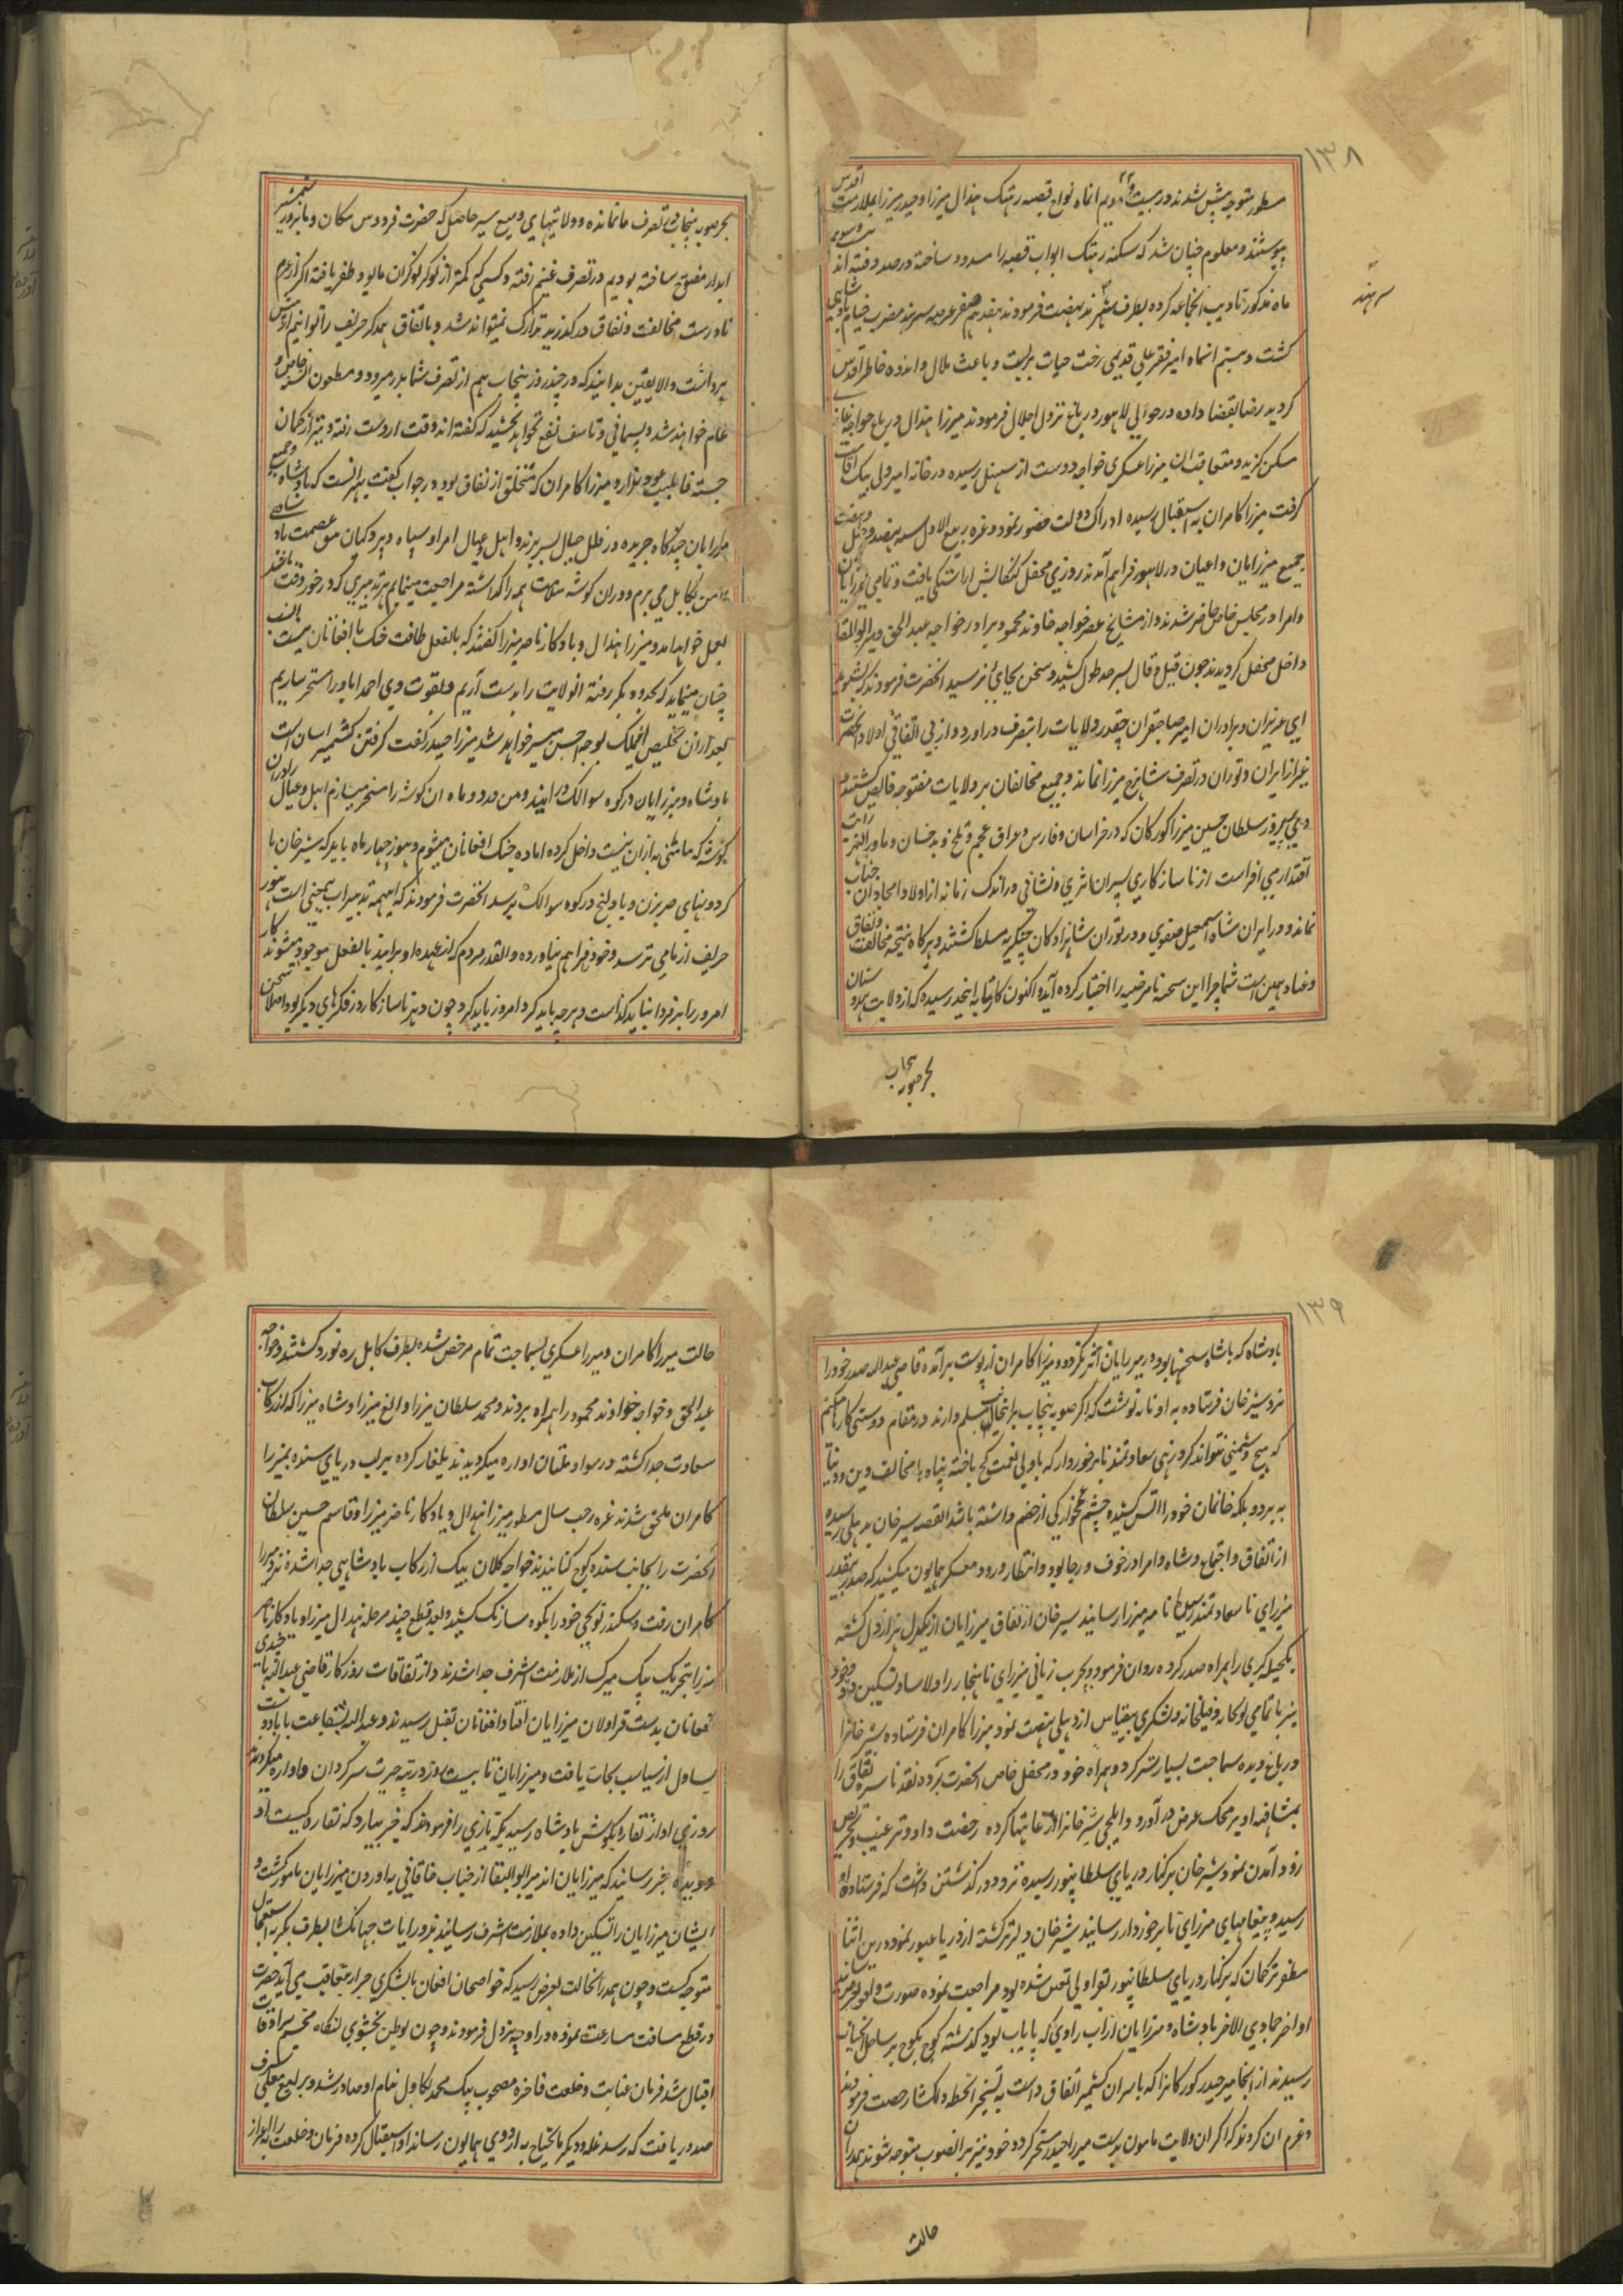 ۱۳۸
سطور متوجه پیش شدند در بیست و دویم انماه نواح قصبه رهتک هندال میرزا و حیدر میرزا بملازمت اقدس
پیوستند و معلوم چنان شد که سکنه رهتک ابواب قصبه را مسدود ساخته در صدد فتنه اند بیست و سویم
ماه مذکور تادیب انجماعه کرده بطرف سهرند نهضت فرمودند هفدهم صفر عرصه سهرند مضرب خیام بادشاهی
سهرند
کشت و بیستم انماه امیر فقر علی قدیمی رخت حیات بربست و باعث ملال و اندوه خاطر اقدس
کردید رضا بقضا داده در حوالی لاهور در باغ نزول اجلال فرمودند میرزا هندال در باغ خواجه غازی
مسکن کزید و متعاقب ان میرزا عسکری خواجه دوست از سنبل رسیده در خانه امیر ولی بیک اقامت
کرفت میرزا کامران به استقبال رسیده ادراک دولت حضور نمود و غره ربیع الاول سنه نهصد و چهل و هفت
جمیع میرزایان و اعیان در لاهور فراهم آمدند روزی محفل کنکاش اراستکی یافت و تمامی میرزایان
و امرا در مجلس خاص حاضر شدند و از مشایخ عصر خواجه خاوند محمود برادر خواجه عبد الحق و میر ابو البقا
داخل محفل کردیدند چون قیل و قال بسرحد طول کشید و سخن بجائی نرسید انحضرت فرمودند که بشنوید
ای عزیزان و برادران امیر صاحبقران چقدر ولایات را بتصرف در اورد و از بی اتفاقی اولاد انحضرت
غیر از ایران و توران در تصرف شاهرخ میرزا نماند و جمیع مخالفان بر ولایات مفتوحه قابض کشتند
سلطان حسین میرزا کورکان که در خراسان و فارس و عراق عجم و بلخ و بدخشان و ماورالنهر رایت
اقتدار می افراست از ناسازکاری پسران اثری و نشانی در اندک زمانه از اولاد امجاد ان جناب
نماند و در ایران شاه اسمعیل صفوی و در توران شاهزادکان چنکیزیه مسلط کشتند و هرکاه نتیجه مخالفت و نفاق
و عناد همین است شما چرا این سجیه نامرضیه را اختیار کرده آید اکنون کار تا بانجد رسیده که از ولایت هندوستان
بجز صوبه پنجاب
بجز صوبه پنجاب در تصرف ما نمانده و ولایتهای وسیع سیر حاصل که حضرت فردوس مکان و ما بزور شمشیر
ابدار مفتوح ساخته بودیم در تصرف غنیم رفته و کسی که کمتر از نوکر نوکران ما بود ظفر یافته اکر از عزم
نادرست مخالفت و نفاق در کذرید تدارک میتواند شد و باتفاق همدکر حریف را توانیم از پیش
برداشت والا یقین بدانید که در چند روز پنجاب هم از تصرف شما بدر میرود و مطعون السنه خاص و
عام خواهند شد و پشیمانی و تاسف نفع نخواهد بخشید که کفته اند وقت از دست رفته و تیر از کمان
جسته قابلیت عود ندارد میرزا کامران که متخلق از نفاق بود در جواب کفت بهتر انست که بادشاه و جمیع
میرزایان چندکاه جریده در ظلل جبال بسر برند و اهل و عیال امرا و سپاه و پردکیان عصمت بادشاهی
من بکابل می برم و در ان کوشه سلامت همه را کذاشته مراجعت مینمایم هر تدبیری که در خور وقت باشد
بعمل خواهد امد و میرزا هندال و یادکار ناصر میرزا کفتند که بالفعل طاقت جنک با افغانان نیست
چنان مینماید که بحدود بکر رفته انولایت را بدست آریم و بقوت وی احمداباد را مسخر سازیم
بعد ازان تخلیص انملک بوجه احسن میسر خواهد شد میرزا حیدر کفت کرفتن کشمیر اسان است
بادشاه و میرزایان در کوه سوالک در ایند و من در دو ماه ان کوشه را مسخر میسازم اهل و عیال را در ان
کوشه که مامنی به ازان نیست داخل کرده اماده جنک افغانان میشوم و هنوز چهار ماه باید که شیر خان با
کردونهای ضربزن و بادلیج در کوه سوالک برسد انحضرت فرمودند که اینهمه تدبیرات بیمعنی است هنوز
حریف از ما می ترسد و خود فراهم نیاورده و القدر مردم که از عهده او برایند بالفعل موجود میشوند کار
امروز را بفردا نباید کذاشت و هرچه باید کرد امروز باید کرد چون دیر ناسازکار در فکرهای دیکر بود اصلا سخن
۱۳۹
بادشاه که باشاه سخنها بود در میرزایان اثر نکرد و میرزا کامران از پوست برآمده قاضی عبدالله صدر خود را
نزد شیر خان فرستاده به او نامه نوشت که اکر صوبه پنجاب براینجانب مسلم دارند در مقام دوستی کارها میکنم
که هیچ دشمنی نتواند کرد زهی سعادتمند نابرخوردار که با ولی نعمت کج باخته پناه بمخالف دین و دنیا
به برد و بلکه خانمان خود را اتش کشیده چشم غمخوارکی از خصم داشته باشد القصه شیر خان بدهلی رسیده
از اتفاق و اجتماع و شاه و امرا در خوف و رجا بود و انتظار ورود معسکر همایون میکشید که صدر بیقدر
میرزای ناسعادتمند رسیده نامه میرزا رسانید شیر خان از نفاق میرزایان از یکدل هزار دل کشته
یکحیله کری را همراه صدر کرده روان فرمود و بچرب زبانی میرزای ناهنجار را دلاسا و تسکین داد و خود
نیز با تمامی توپخانه و فیلخانه و لشکری بیقیاس از دهلی نهضت نمود میرزا کامران فرستاده شیر خان را
در باغ دیده سماجت بسیار تر کرد و همراه خود در محفل خاص انحضرت برده نقد ناسره نفاق را
بمشافه او بر محک عرض در آورد و ایلچی شیر خان را رعایتها کرده رخصت داد و ترغیب و تحریص
زود آمدن نمود شیر خان بر کنار دریای سلطانپور رسیده تردد در کذشتن داشت که فرستاده او
رسید و پیغامهای میرزای نابرخوردار رسانید شیر خان دلیرتر کشته از دریا عبور نمود درین اثنا
مظفر ترکمان که بر کنار دریای سلطانپور بقراولی تعین شده بود مراجعت نموده صورت واقعه بعرض رسانید
اواخر جمادی الاخر بادشاه و میرزایان از اب راوی که پایاب بود کذشته کوچ بکوچ بر ساحل اب چناب
رسیدند از انجا میر حیدر کورکان را که با سران کشمیر اتفاق داشت به تسخیر انخطه دلکشا رخصت فرمودند
و عزم ان کردند که اکر ان ولایت مامون بدست میرزا حیدر مسخر کردد خود نیز بر انصوب متوجه شوند همدران
حالت
حالت میرزا کامران و میرزا عسکری بسماجت تمام مرخص شده بطرف کابل ره نورد کشتند و خواجه
عبد الحق و خواجه خاوند محمود را همراه بردند و محمد سلطان میرزا و الغ میرزا و شاه میرزا که از رکاب
سعادت جدا کشته در سواد ملتان اواره میکردیدند یلغار کرده برلب دریای سنده بمیرزا
کامران ملحق شدند غره رجب سال مسطور میرزا هندال و یادکار ناصر میرزا و قاسم حسین سلطان
انحضرت را بجانب سنده کوچ کنانیدند خواجه کلان بیک از رکاب بادشاهی جدا شده نزد میرزا
کامران رفت و سکندر توپچی خود را بکوه سارنک کشید و بعد قطع چند مرحله هندال میرزا و یادکار ناصر
میرزا بتحریک بیک میرک از ملازمت اشرف جدا شدند و از اتفاقات روزکار قاضی عبدالله با چندی
افغانان بدست قراولان میرزایان افتاد افغانان بقتل رسیدند و عبدالله بشفاعت بابا دوست
یساول از سیاست نجات یافت و میرزایان تا بیست روز در تیه حیرت سرکردان و اواره میکردیدند
روزی اواز نقاره بکوش بادشاه رسید یکه تازی را فرمودند که خبر بیارد که نقاره کیست او
دوید و خبر رسانید که میرزایان اند میر ابو البقا از جناب خاقانی به اوردن میرزایان مامور کشت و
ایشان میرزایان را تسکین داده بملازمت اشرف رسانیدند و رایات جهانکشا بطرف بکر به استعجال
متوجه کشت و چون همدرانحالت بعرض رسید که خواصخان افغان بالشکری جرار متعاقب می آید حضرت
در قطع مسافت مسارعت نموده در اوچه نزول فرمودند و چون بوطن بخشوی لنکاه مخیم سرادقات
اقبال شد فرمان عنایت و خلعت فاخره مصحوب بیک محمد بکاول بنام او صادر شد و یرلیغ معلی شرف
صدور یافت که رسد غله و دیکر مایحتاج به اردوی همایون رساند او استقبال کرده فرمان و خلعت را به اعزاز